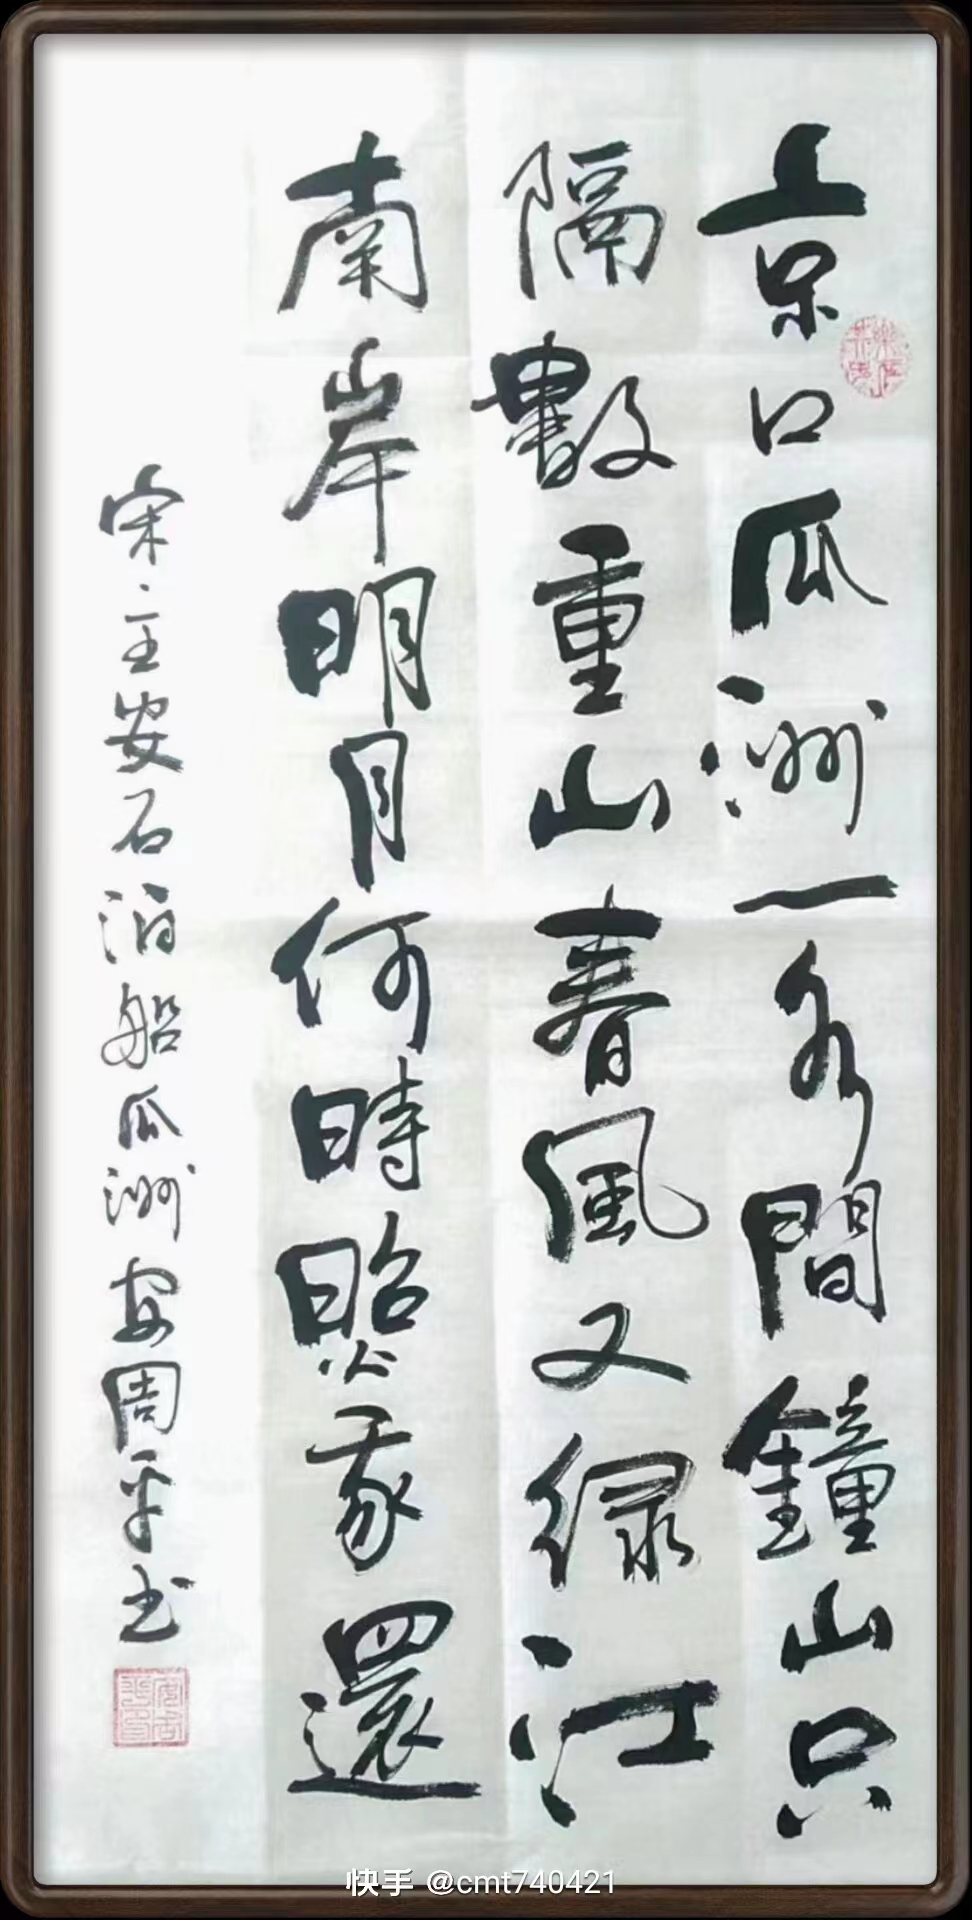 京口瓜洲一水間鐘山只
隔數重山春風又緑江
南岸明月何時照我還
宋·王安石泊船瓜洲安周平书
快手 @cmt740421